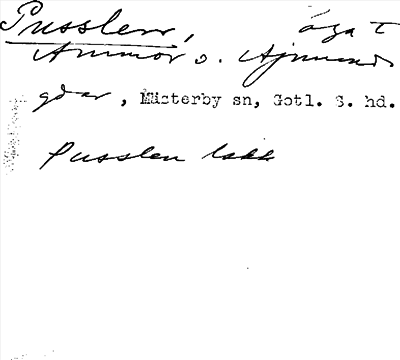 Pusslen, äga t
Ammor o. Ajmunds
gdar, Mästerby sn, Gotl. S. hd.
Pusslen